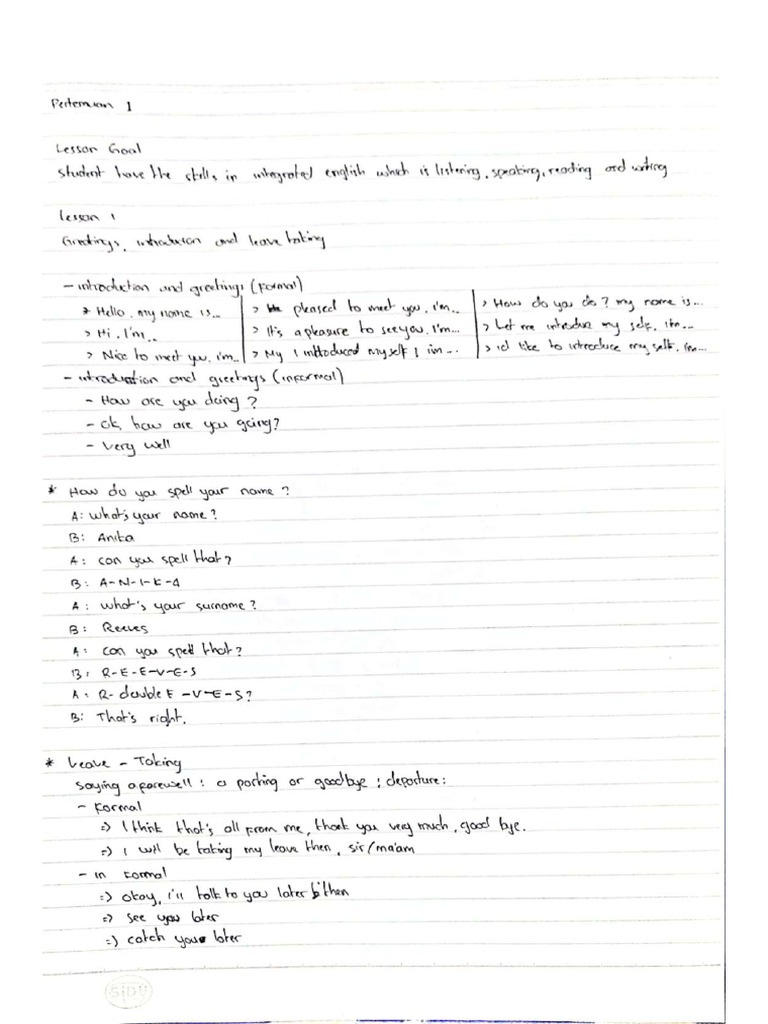 Pertemuan 1
Lesson Goal
Student have the skills in integrated english which is listening, speaking, reading and writing
Lesson 1
Greetings, introduction and leave taking
- introduction and greetings (formal)
* Hello. my name is...
> Hi. I'm..
> Nice to meet you. i'm..
> pleased to meet you. i'm..
> It's a pleasure to see you. I'm...
> My I introduced myself, I im...
> How do you do? my name is...
> Let me introduce my self. i'm...
> i'd like to introduce my self. i'm...
- introduction and greetings (informal)
- How are you doing?
- Ok, how are you going?
- Very well
* How do you spell your name?
A: what's your name?
B: Anika
A: can you spell that?
B: A-N-I-K-A
A: what's your surname?
B: Reeves
A: can you spell that?
B: R-E-E-V-E-S
A: R-double E-V-E-S?
B: That's right.
* Leave - Taking
Saying a farewell: a parting or goodbye; departure:
- Formal
=> I think that's all from me, thank you very much, good bye.
=> I will be taking my leave then, sir/ma'am
- in Formal
=> Okay, i'll talk to you later then
=> see you later
=> catch you later
SiDU